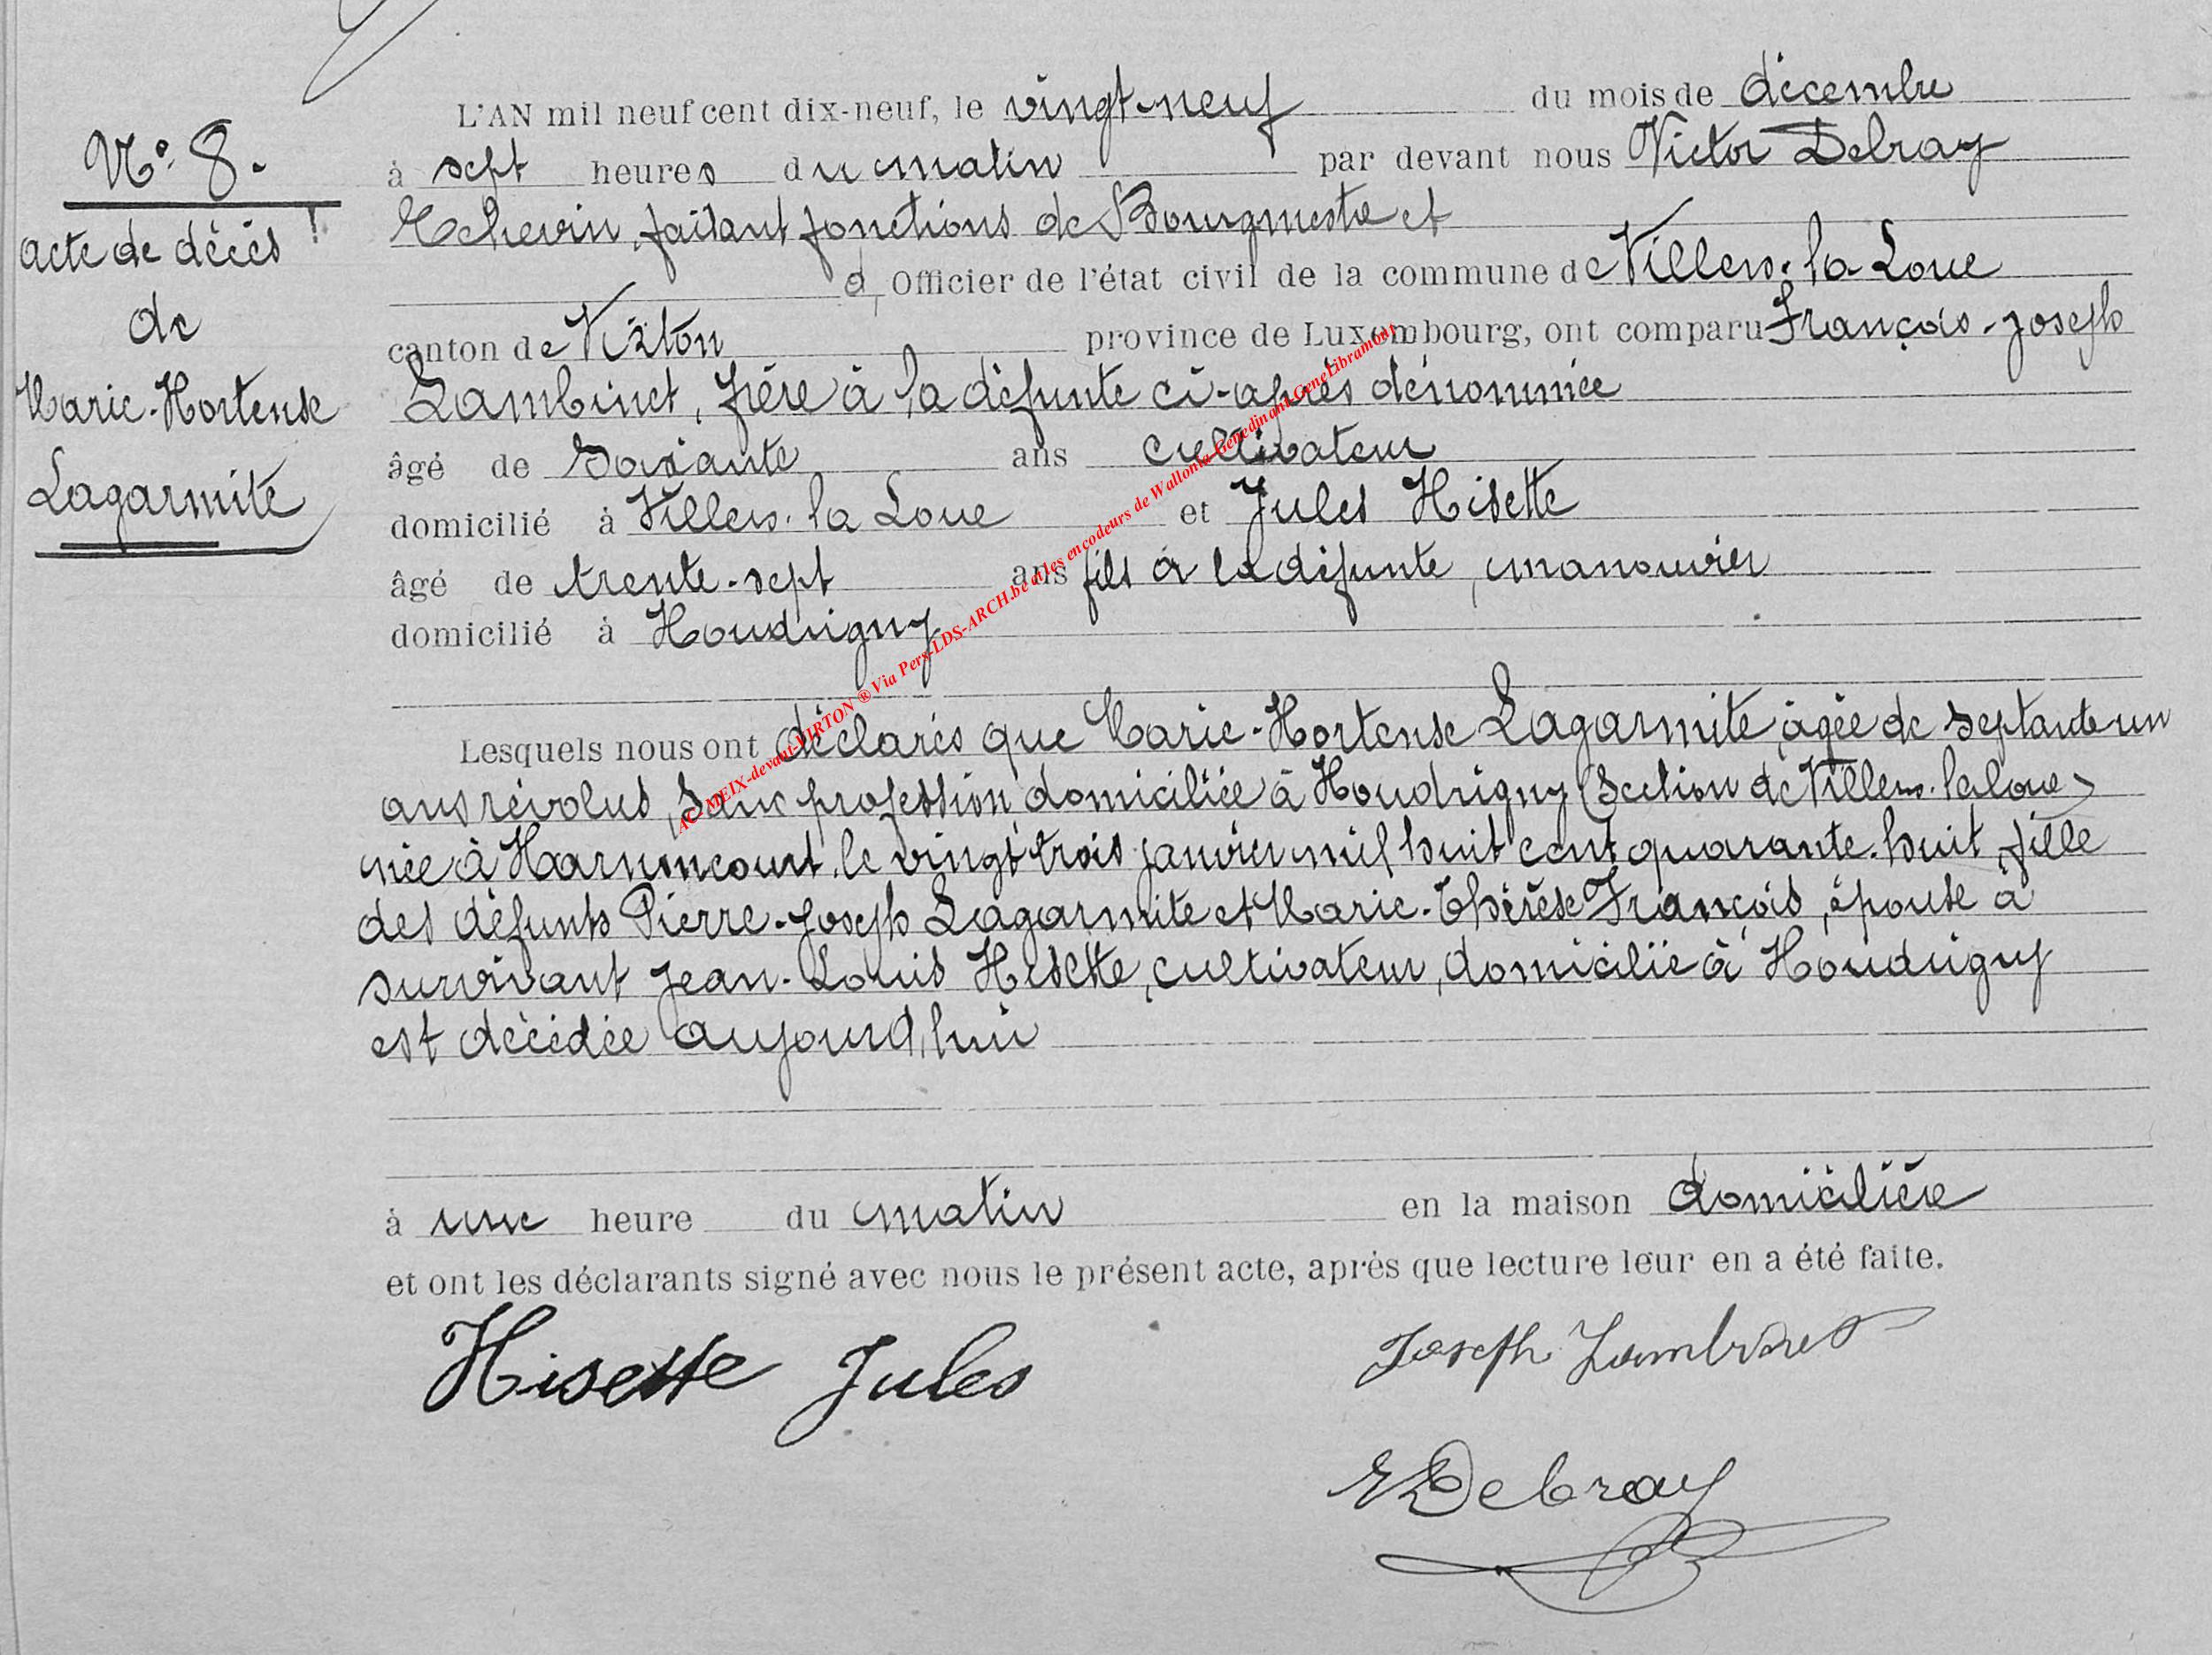 N° 8.
acte de décès
de
Marie-Hortense
Lagarmite
L'AN mil neuf cent dix-neuf, le vingt-neuf du mois de décembre
à sept heures du matin par devant nous Victor Debray
Echevin, faisant fonctions de Bourgmestre et
d, Officier de l'état civil de la commune de Villers-la-Loue
canton de Virton province de Luxembourg, ont comparu François-Joseph
Lambinet, frère à la défunte ci-après dénommée
âgé de soixante ans cultivateur
domicilié à Villers-la Loue et Jules Hisette
âgé de trente-sept ans fils à la défunte, manouvrier
domicilié à Houdrigny
Lesquels nous ont déclarés que Marie-Hortense Lagarmite, âgée de septante un
ans révolus, sans profession domiciliée à Houdrigny (Section de Villers-la loue)
née à Harnoncourt, le vingt trois janvier mil huit cent quarante-huit, fille
des défunts Pierre-Joseph Lagarmite et Marie-Thérèse François, épouse à
survivant Jean-Louis Hisette, cultivateur, domicilié à Houdrigny
est décédée aujourd'hui
à une heure du matin en la maison domicilière
et ont les déclarants signé avec nous le présent acte, après que lecture leur en a été faite.
Hisette Jules Joseph Lambinet
VDebray
AC MEIX-devant-VIRTON ® Via Pers-LDS-ARCH.be et les encodeurs de Wallonia-Genedinant-GeneLibramont